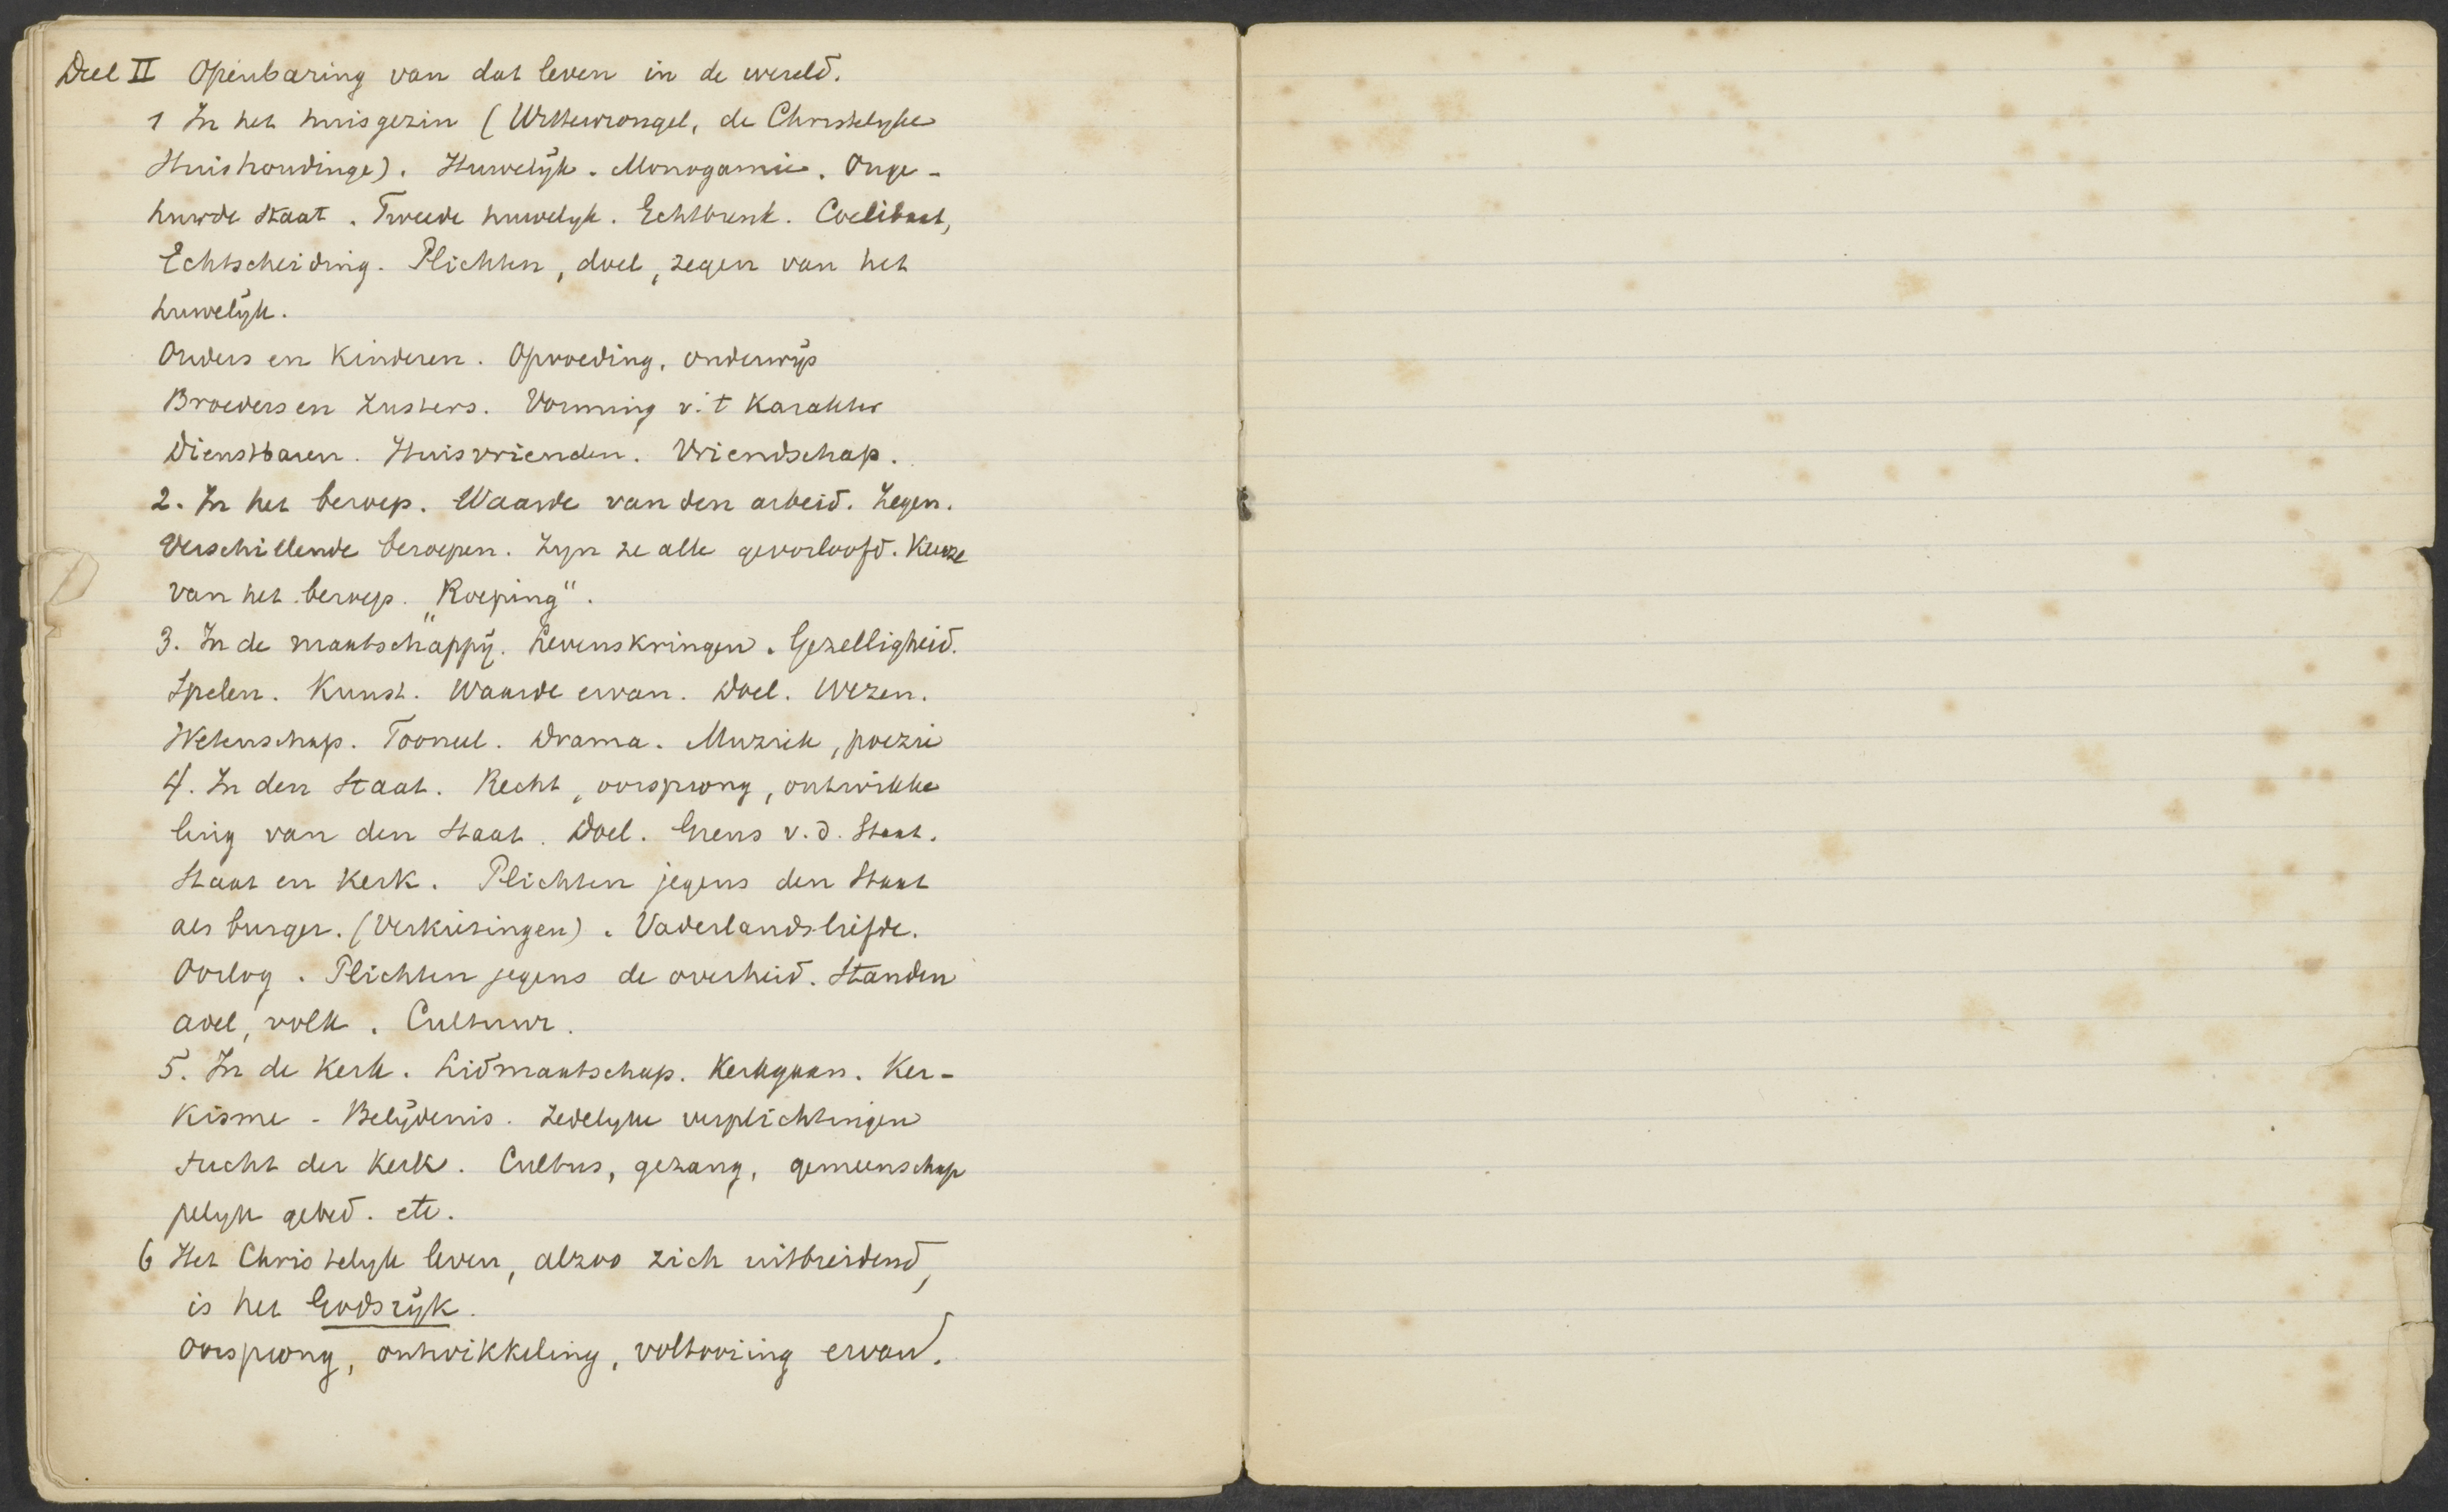 Deel II Openbaring van dat leven in de wereld.
1 In het huisgezin (Wittewrongel, de Christelyke
Huishoudinge). Huwelÿk. Monogamie. Onge-
huwde staat. Tweede huwelyk. Echtbreuk. Coelibaat,
Echtscheiding. Plichten, doel, zegen van het
huwelÿk.
Ouders en Kinderen. Opvoeding, onderwÿs
Broeders en Zusters. Vorming v. 't Karakter
Dienstbaren. Huisvrienden. Vriendschap.
2. In het beroep. Waarde van den arbeid. Zegen.
Verschillende beroepen. Zyn ze alle geoorloofd. Keuze
van het beroep. „Roeping“.
3. In de maatschappÿ. Levenskringen. Gezelligheid.
Spelen. Kunst. Waarde ervan. Doel. Wezen.
Wetenschap. Tooneel. Drama. Muziek, poezie
4. In den Staat. Recht, oorsprong, ontwikke
ling van den Staat. Doel. Grens v. d. Staat.
Staat en Kerk. Plichten jegens den Staat
als burger. (Verkiezingen). Vaderlandsliefde.
Oorlog. Plichten jegens de overheid. Standen
adel, volk. Cultuur.
5. In de Kerk. Lidmaatschap. Kerkgaan. Ker-
kisme - Belÿdenis. Zedelyke verplichtingen
tucht der Kerk. Cultus, gezang, gemeenschap
pelyk gebed. etc.
6 Het Christelyk leven, alzoo zich uitbreidend,
is het Godsrÿk.
Oorsprong, ontwikkeling, voltooiing ervan.